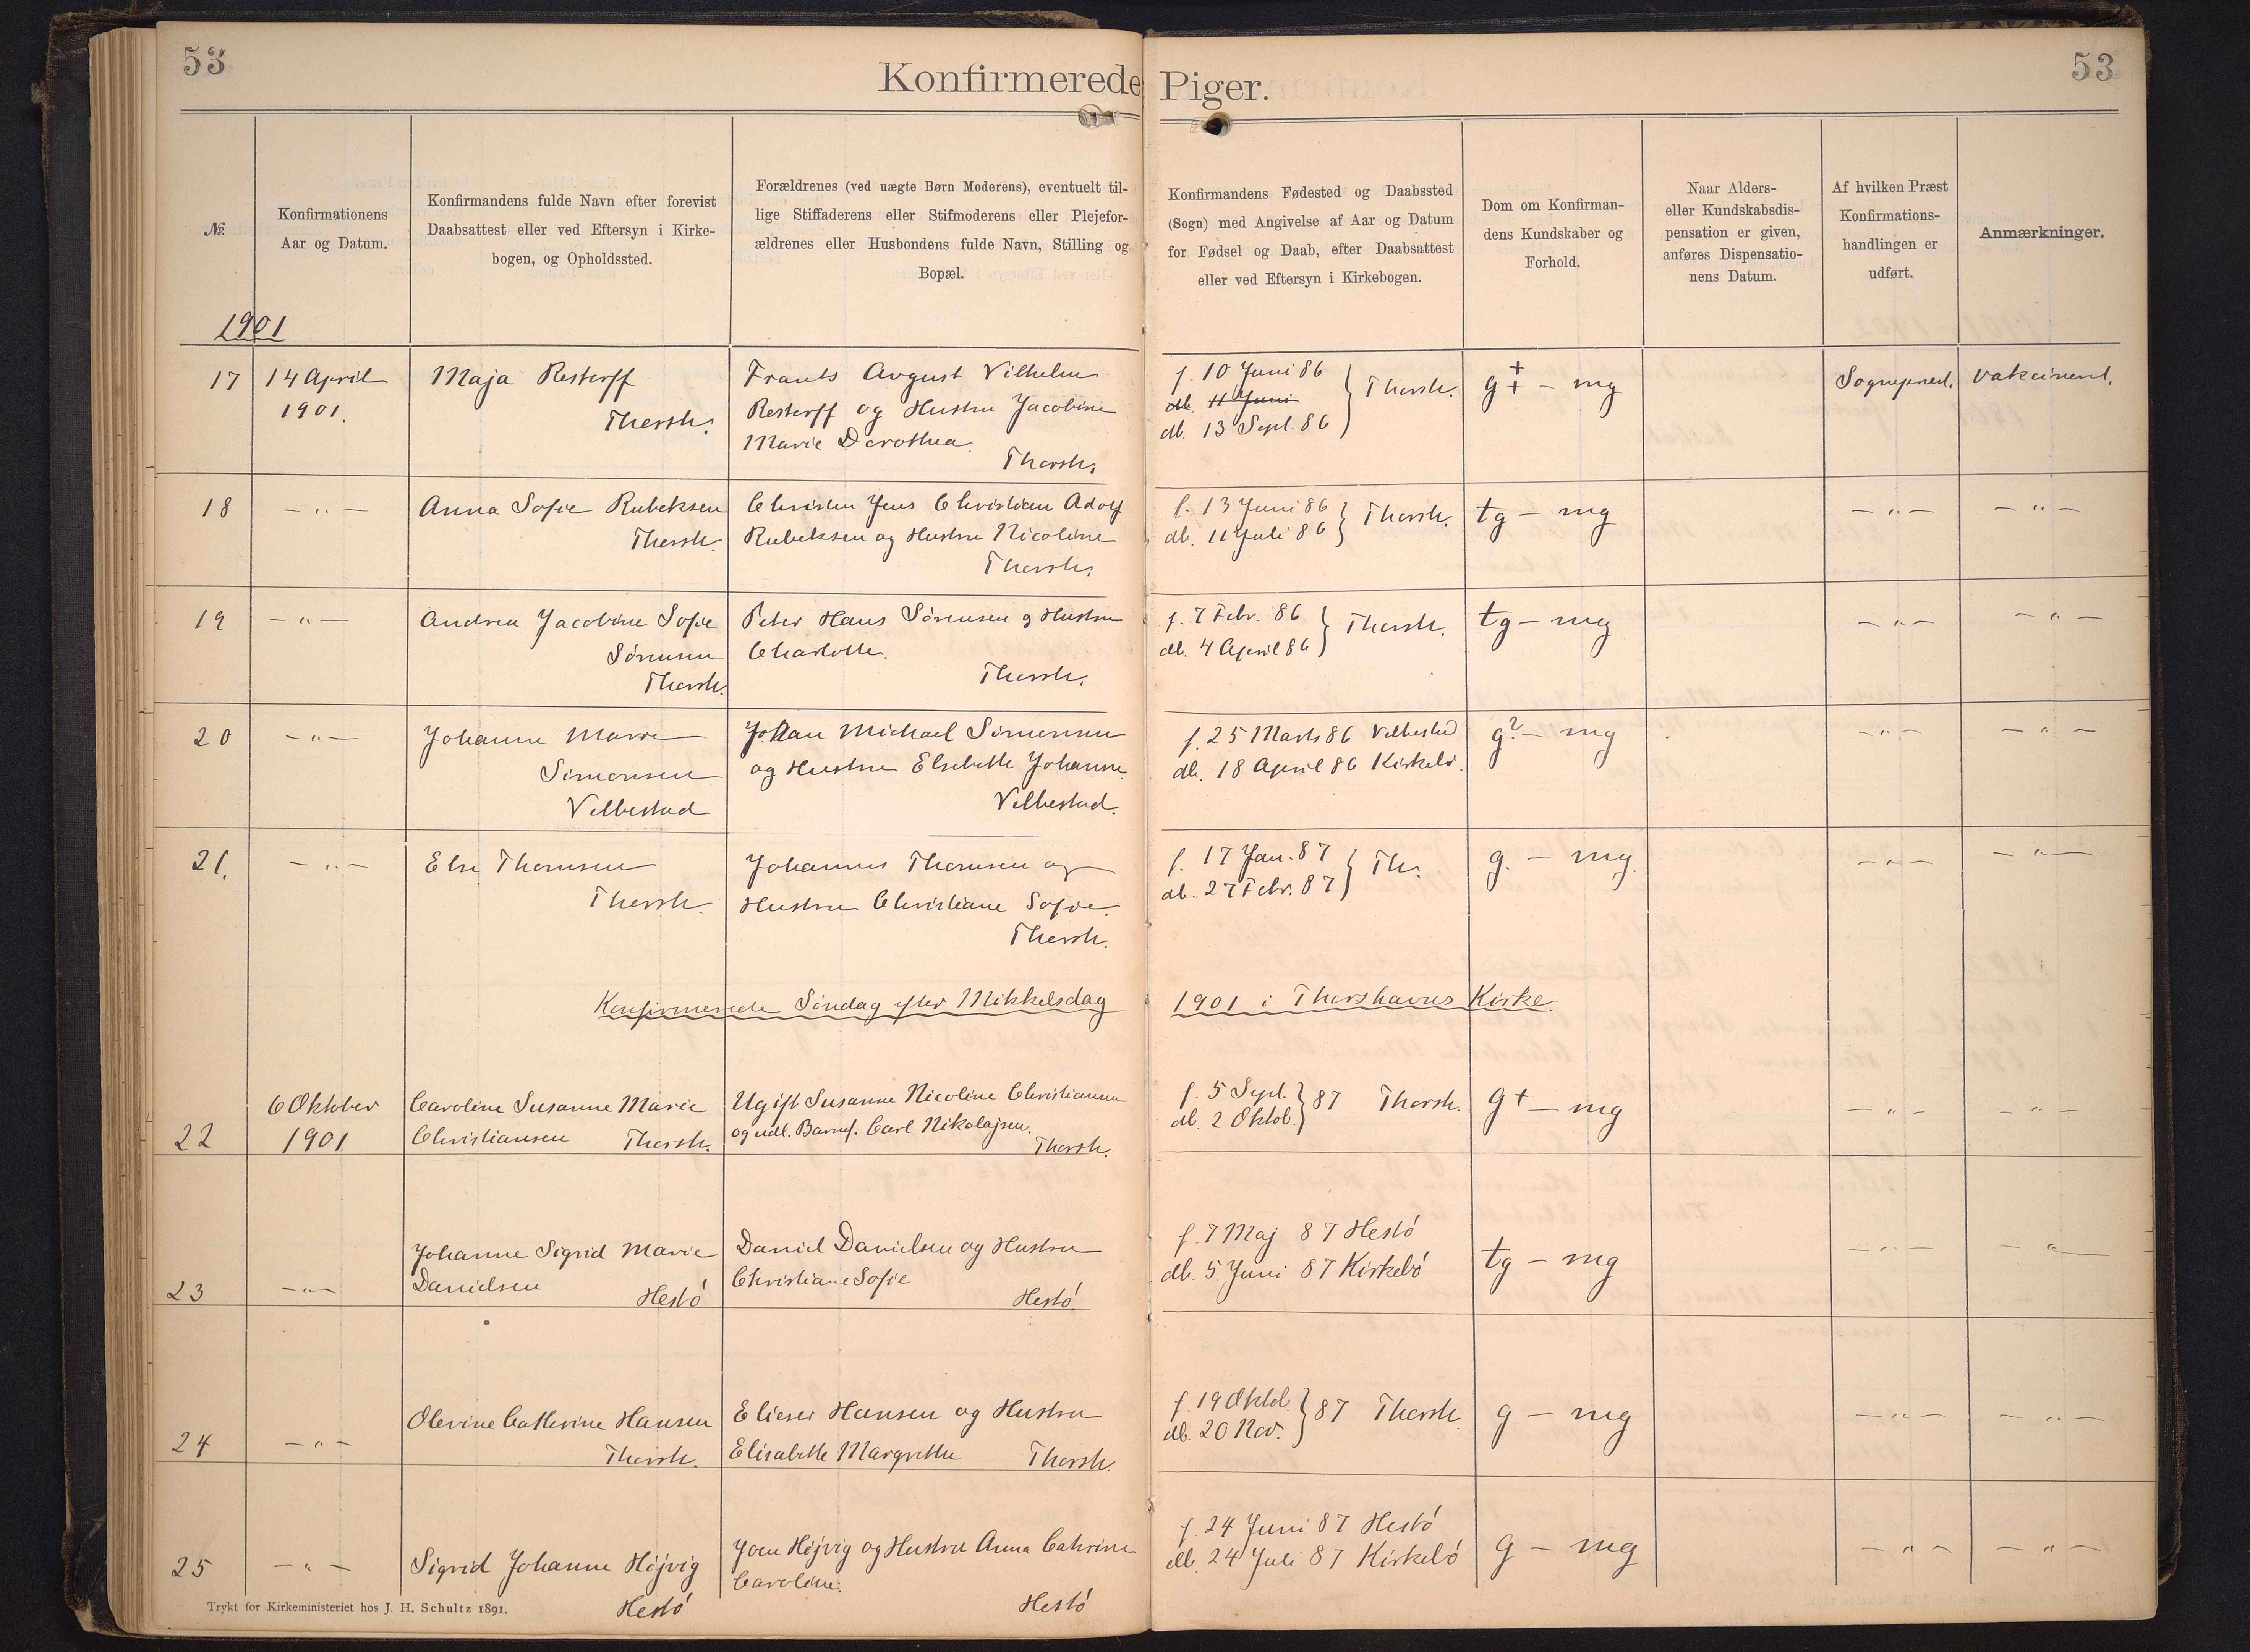 53
Konfirmerede Piger.
53
№.
Konfirmationens
Aar og Datum.
Konfirmandens fulde Navn efter forevist
Daabsattest eller ved Eftersyn i Kirke-
bogen, og Opholdssted.
Forældrenes (ved uægte Børn Moderens), eventuelt til-
lige Stiffaderens eller Stifmoderens eller Plejefor-
ældrenes eller Husbondens fulde Navn, Stilling og
Bopæl.
Konfirmandens Fødested og Daabssted
(Sogn) med Angivelse af Aar og Datum
for Fødsel og Daab, efter Daabsattest
eller ved Eftersyn i Kirkebogen.
Dom om Konfirman-
dens Kundskaber og
Forhold.
Naar Alders-
eller Kundskabsdis-
pensation er given,
anføres Dispensatio-
nens Datum.
Af hvilken Præst
Konfirmations-
handlingen er
udført.
Anmærkninger.
1901
17
14 April
1901.
Maja Restorff
Thorsh.
Frants August Vilhelm
Restorff og Hustru Jacobine
Marie Dorothea.
Thorsh.
f. 10 Juni 86
db. 11 Juni
db. 13 Sept. 86
} Thorsh.
g ‡ – mg
Sognepræst.
Vakcineret.
18
– „ –
Anna Sofie Rubeksen
Thorsh.
Christen Jens Christian Adolf
Rubeksen og Hustru Nicoline
Thorsh.
f. 13 Juni 86
db. 11 Juli 86
} Thorsh.
tg – mg
– „ –
– „ –
19
– „ –
Andrea Jacobine Sofie
Sörensen
Thorsh.
Peter Hans Sörensen og Hustru
Charlotte.
Thorsh.
f. 7 Febr. 86
db. 4 April 86
} Thorsh.
tg – mg
– „ –
– „ –
20
– „ –
Johanne Marie
Simonsen
Velbestad
Johan Michael Simonsen
og Hustru Elsebeth Johanne.
Velbestad.
f. 25 Marts 86 Velbestad
db. 18 April 86 Kirkebö.
g? – mg
– „ –
– „ –
21.
– „ –
Else Thomsen
Thorsh.
Johannes Thomsen og
Hustru Christiane Sofie.
Thorsh.
f. 17 Jan. 87
db. 27 Febr. 87
} Th.
g. – mg.
– „ –
– „ –
Konfirmerede Söndag efter Mikkelsdag 1901 i Thorshavns Kirke
22
6 Oktober
1901
Caroline Susanne Marie
Christiansen Thorsh.
Ugift Susanne Nicoline Christiansen
og udl. Barnef. Carl Nikolajsen.
Thorsh.
f. 5 Sept.
db. 2 Oktob.
} 87 Thorsh.
g+ – mg
– „ –
– „ –
23
– „ –
Johanne Sigrid Marie
Danielsen
Hestö
Daniel Danielsen og Hustru
Christiane Sofie
Hestö
f. 7 Maj 87 Hestö
db. 5 Juni 87 Kirkebö
tg – mg
– „ –
– „ –
24
– „ –
Olevine Cathrine Hansen
Thorsh.
Elieser Hansen og Hustru
Elisabeth Margrethe Thorsh.
f. 19 Oktob.
db. 20 Nov.
} 87 Thorsh.
g – mg
– „ –
– „ –
25
– „ –
Sigrid Johanne Höjvig
Hestö
Joen Höjvig og Hustru Anna Cathrine
Caroline.
Hestö
f. 24 Juni 87 Hestö
db. 24 Juli 87 Kirkebö
g – mg
– „ –
– „ –
Trykt for Kirkeministeriet hos J. H. Schultz 1891.